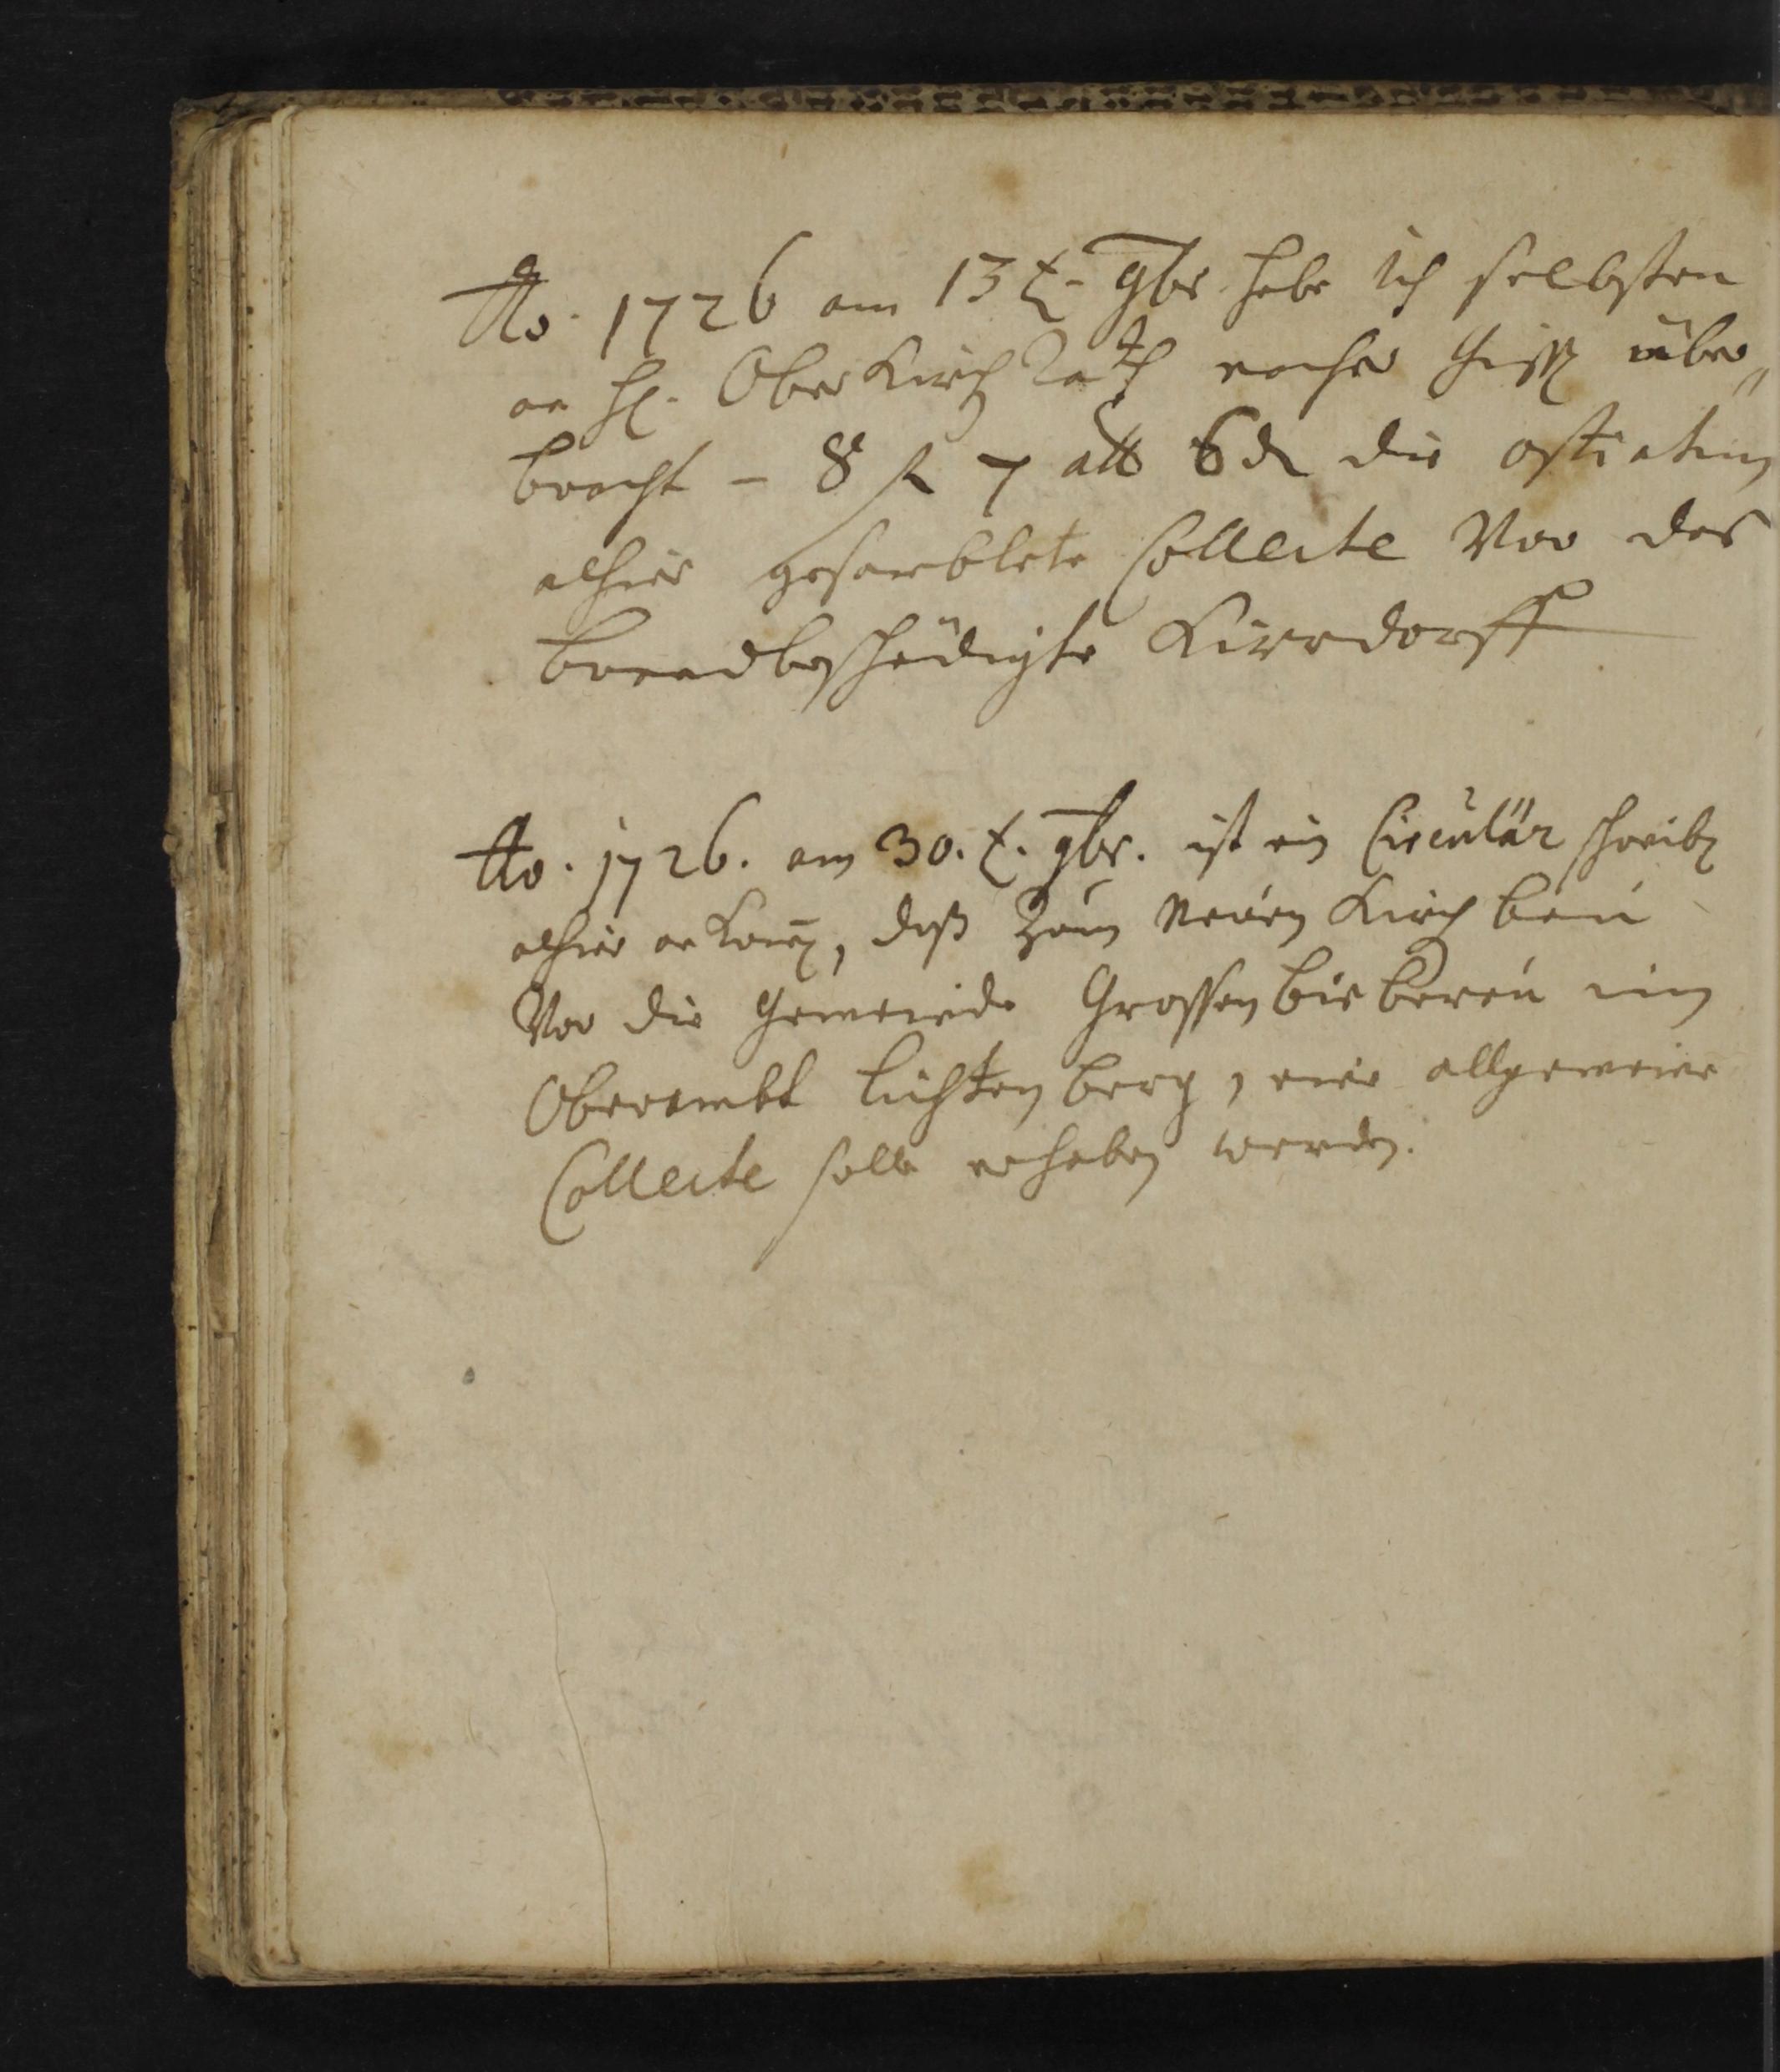 Ao. 1726 am 13 t. 9br. habe ich selbsten
an H. Ober Kirch Rath nacher Giss. über„
bracht - 8 f 7 alb 6 d die ostiatim
alhier gesamblete Collecte vor das
brandbeschädigte Kirrdorff
Ao. 1726. am 30. t. 9br. ist ein Circulär schreib
alhier ankom, daß zum neuen Kirch bau
vor die Gemeinde Grossen bieberau im
Oberambt Lichtenberg, eine allgemeine
Collecte solle erhaben werden.